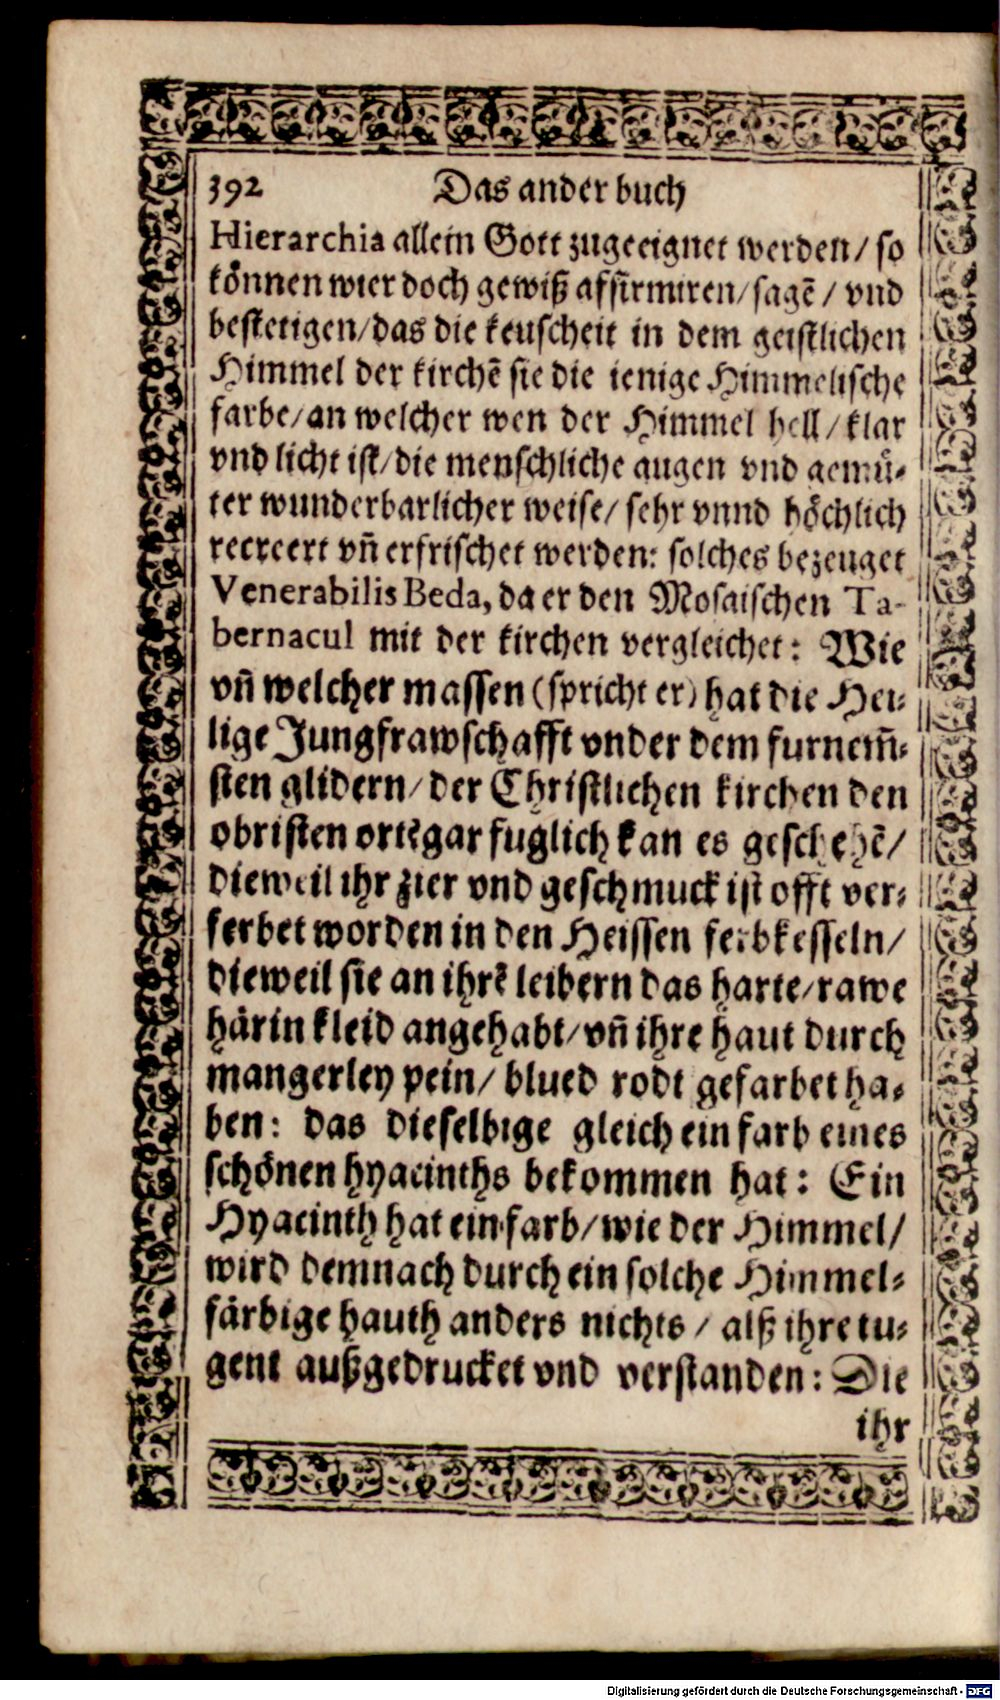 392 Das ander buch
Hierarchia allein Gott zugeeignet werden/ so
können wier doch gewiß affirmiren/ sagē/ vnd
bestetigen/ das die keuscheit in dem geistlichen
Himmel der kirchē sie die ienige Himmelische
farbe/ an welcher wen der Himmel hell/ klar
vnd licht ist/ die menschliche augen vnd gemü-
ter wunderbarlicher weise/ sehr vnnd höchlich
recreert vn̄ erfrischet werden: solches bezeuget
Venerabilis Beda, da er den Mosaischen Ta-
bernacul mit der kirchen vergleichet: Wie
vn̄ welcher massen (spricht er) hat die Hei-
lige Jungfrawschafft vnder dem furnem̄-
sten glidern/ der Christlichen kirchen den
obristen ort? gar fuglich kan es geschehē/
dieweil ihr zier vnd geschmuck ist offt ver-
ferbet worden in den Heissen ferbkesseln/
dieweil sie an ihrē leibern das harte/ rawe
härin kleid angehabt/ vn̄ ihre haut durch
mangerley pein/ blued rodt gefarbet ha-
ben: das dieselbige gleich ein farb eines
schönen hyacinths bekommen hat: Ein
Hyacinth hat ein farb/ wie der Himmel/
wird demnach durch ein solche Himmel-
färbige hauth anders nichts / alß ihre tu-
gent außgedrucket vnd verstanden: Die
ihr
Digitalisierung gefördert durch die Deutsche Forschungsgemeinschaft - DFG